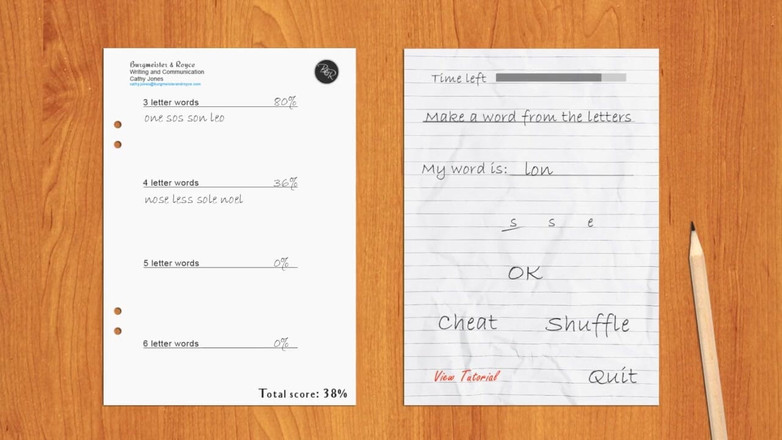 Burgmeister & Royce
Writing and Communication
Cathy Jones
cathy.jones@burgmeisterandroyce.com
B&R
3 letter words 80%
one sos son leo
4 letter words 36%
nose less sole noel
5 letter words 0%
6 letter words 0%
Total score: 38%
Time left
Make a word from the letters
My word is: lon
s s e
OK
Cheat Shuffle
View Tutorial Quit